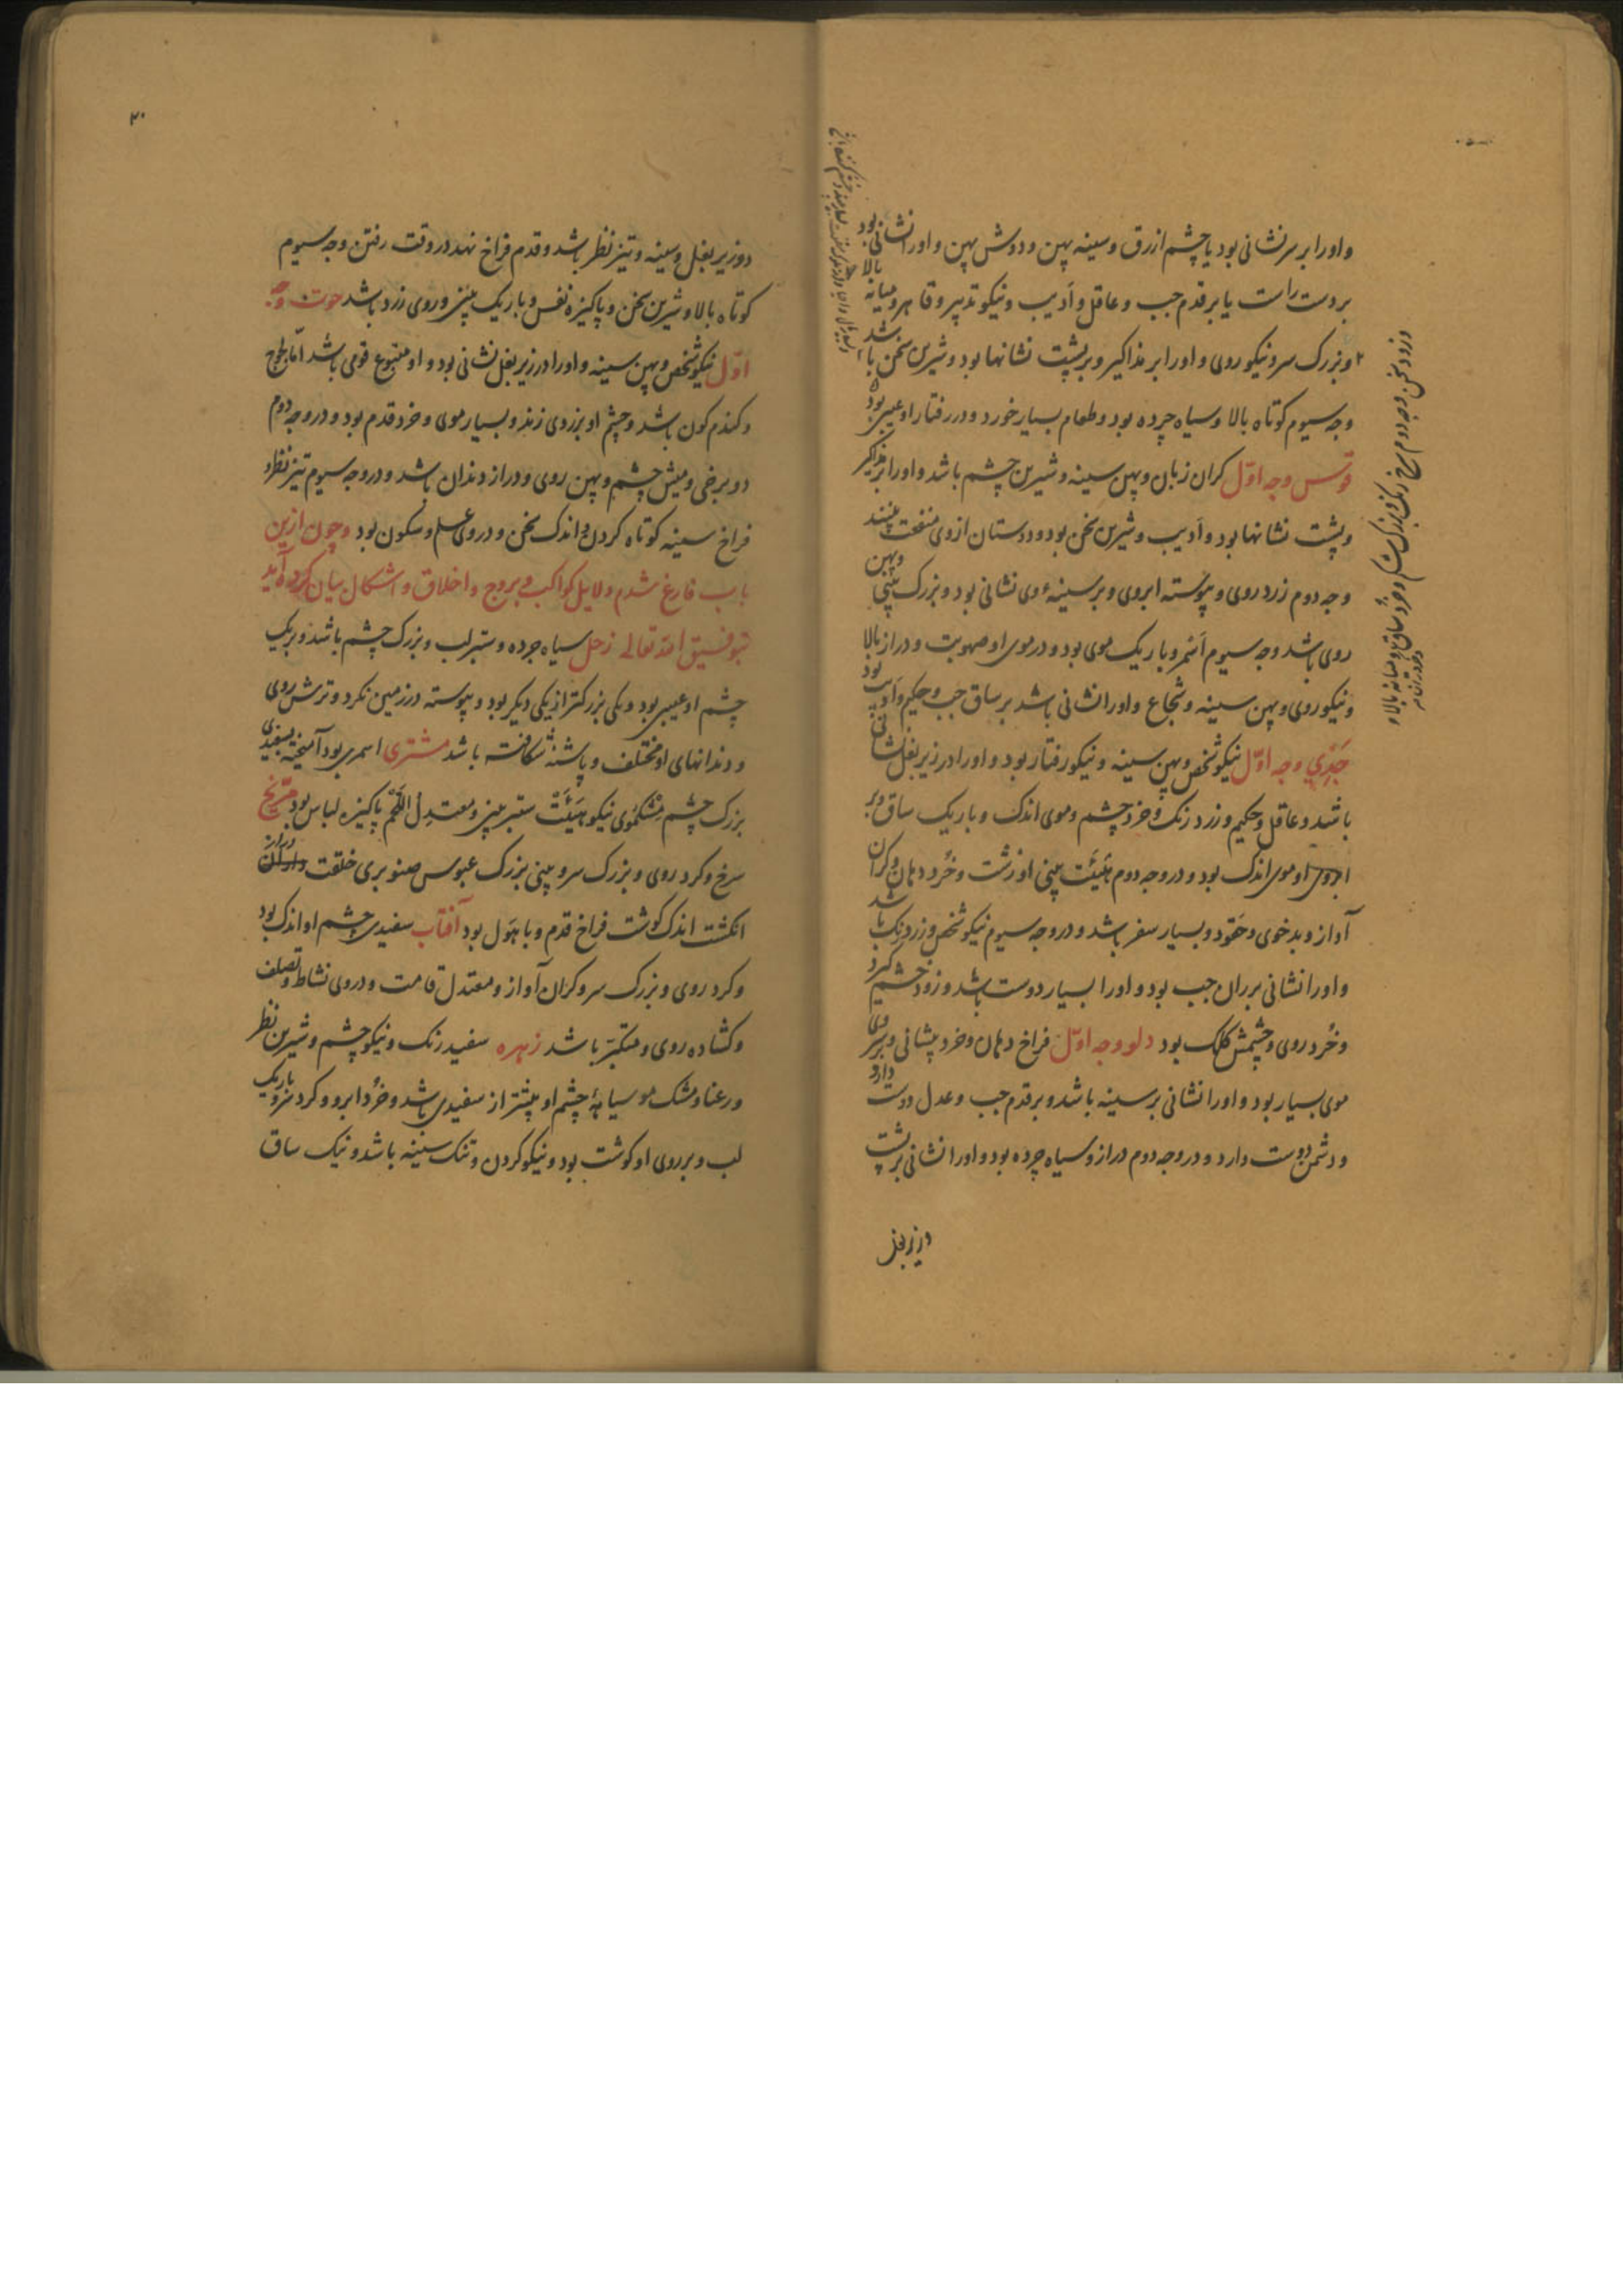 واورا بر سر نشانی بود یا چشم ازرق و سینه پهن و دوش پهن و اورا نشانی بود
بر دست راست یا بر قدم چپ و عاقل و ادیب و نیکو تدبیر و قاهر و میانه بالا
و بزرک سر و نیکو روی و اورا بر مذاکیر و بر پشت نشانها بود و شیرین سخن باشد
وجه سیوم کوتاه بالا و سیاه چرده بود و طعام بسیار خورد و در رفتار او عیبی بود
قوس وجه اوّل کران زبان و پهن سینه و شیرین چشم باشد و اورا بر مذاکیر
و پشت نشانها بود و ادیب و شیرین سخن بود و دوستان ازوی منفعت بینند
وجه دوم زرد روی و پیوسته ابروی و بر سینهٔ وی نشانی بود و بزرک بینی و پهن
روی باشد وجه سیوم اسمر و باریک موی بود و در موی او صهوبت و دراز بالا
و نیکو روی و پهن سینه و شجاع و اورا نشانی باشد بر ساق چپ و حکیم و ادیب بود
جَدْیِ وجه اوّل نیکو شخص و پهن سینه و نیکو رفتار بود و اورا در زیر بغل نشانی
باشد و عاقل و حکیم و زرد رنک و خرد چشم و موی اندک و باریک ساق و بر
ابروی او موی اندک بود و در وجه دوم هَیْئَت بینی او زشت و خُرد دهان و کران
آواز و بدخوی و حَقود و بسیار سفر باشد و در وجه سیوم نیکو شخص و زرد رنک باشد
و اورا نشانی بر ران چپ بود و اورا بسیار دوست باشد و زود خشم کیرد
و خُرد روی و چشمش کلک بود دلو وجه اوّل فراخ دهان و خرد پیشانی و بر سر وی
موی بسیار بود و اورا نشانی بر سینه باشد و بر قدم چپ و عدل دوست دارد
و دشمن دوست دارد و در وجه دوم دراز و سیاه چرده بود و اورا نشانی بر پشت
در زیر بغل
۲۰
و در زیر بغل و سینه و تیز نظر باشد و قدم فراخ نهد در وقت رفتن وجه سیوم
کوتاه بالا و شیرین سخن و پاکیزه نفس و باریک بینی و روی زرد باشد حوت وجه
اوّل نیکو شخص و پهن سینه و اورا در زیر بغل نشانی بود و او متبوع قومی باشد امّا لجوج
و کندم کون باشد و چشم او بزردی زند و بسیار موی و خرد قدم بود و در وجه دوم
و میش چشم و پهن روی و دراز دندان باشد و در وجه سیوم تیز نظر و
فراخ سینه کوتاه کردن و اندک سخن و در وی علم و سکون بود و چون ازین
باب فارغ شدم دلایل کواکب و بروج و اخلاق و اشکال بیان کرده آید
بتوفیق الله تعالی زحل سیاه جرده و ستبر لب و بزرک چشم باشد و بریک
چشم او عیبی بود و یکی بزرکتر از یکی دیکر بود و پیوسته در زمین نکرد و ترش روی
و دندانهای او مختلف و پاشنهٔ شکافته باشد مشتری اسمری بود آمیخته بسفیدی
بزرک چشم مشکموی نیکو هَیْئَت ستبر بینی و معتدِل اللَّحْم پاکیزه لباس بود مرّیخ
سرخ و کرد روی و بزرک سر و بینی بزرک عبوس صنوبری خلقت دراز
انکشت اندک کوشت فراخ قدم و با هَول بود آفتاب سفیدی چشم او اندک بود
و کرد روی و بزرک سر و کران آواز و معتدل قامت و در وی نشاط و تصلف
و کشاده روی و متکبّر باشد زهره سفید رنک و نیکو چشم و شیرین نظر
و رعنا و مشک مو سیاههٔ چشم او بیشتر از سفیدی باشد و خُرد ابرو و کرد سر و باریک
لب و بر روی او کوشت بود و نیکو کردن و تنک سینه باشد و نیک ساق